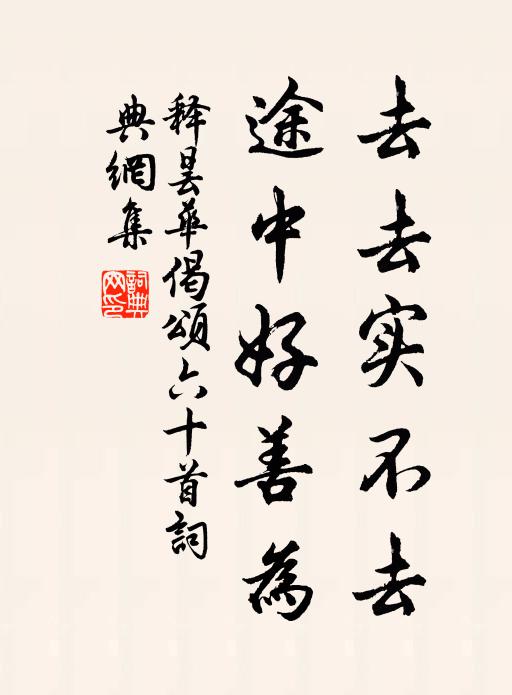 去去实不去
途中好善為
释曇華偈頌六十首詞
典網集
詞典网印